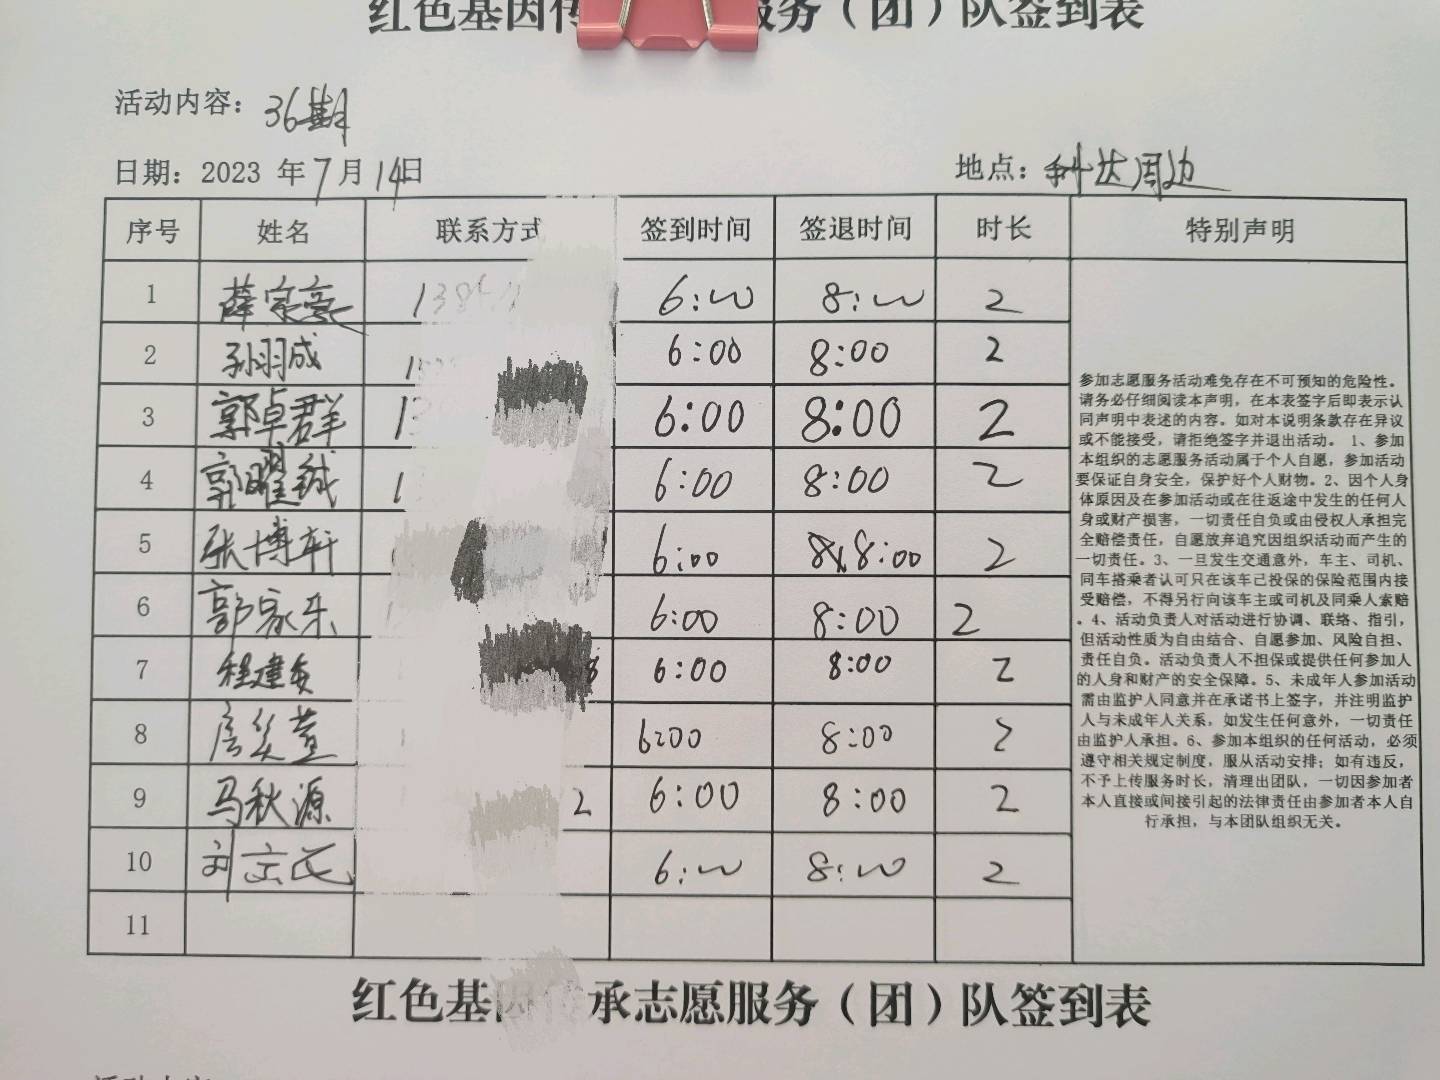 红色基因传 服务（团）队签到表
活动内容：36期
日期：2023 年7月14日 地点：科达周边
序号 姓名 联系方式 签到时间 签退时间 时长 特别声明
1 薛宗亮 138 6:00 8:00 2
2 孙羽成 6:00 8:00 2
3 郭卓群 1 6:00 8:00 2
4 郭曜铖 1 6:00 8:00 2
5 张博轩 6:00 8:00 2
6 郭家乐 6:00 8:00 2
7 程建安 8 6:00 8:00 2
8 6:00 8:00 2
9 马秋源 2 6:00 8:00 2
10 刘 6:00 8:00 2
11
参加志愿服务活动难免存在不可预知的危险性。
请务必仔细阅读本声明，在本表签字后即表示认
同声明中表述的内容。如对本说明条款存在异议
或不能接受，请拒绝签字并退出活动。 1、参加
本组织的志愿服务活动属于个人自愿，参加活动
要保证自身安全，保护好个人财物。2、因个人身
体原因及在参加活动或在往返途中发生的任何人
身或财产损害，一切责任自负或由侵权人承担完
全赔偿责任，自愿放弃追究因组织活动而产生的
一切责任。3、一旦发生交通意外，车主、司机、
同车搭乘者认可只在该车已投保的保险范围内接
受赔偿，不得另行向该车主或司机及同乘人索赔
。4、活动负责人对活动进行协调、联络、指引，
但活动性质为自由结合、自愿参加、风险自担、
责任自负。活动负责人不担保或提供任何参加人
的人身和财产的安全保障。5、未成年人参加活动
需由监护人同意并在承诺书上签字，并注明监护
人与未成年人关系，如发生任何意外，一切责任
由监护人承担。6、参加本组织的任何活动，必须
遵守相关规定制度，服从活动安排；如有违反，
不予上传服务时长，清理出团队，一切因参加者
本人直接或间接引起的法律责任由参加者本人自
行承担，与本团队组织无关。
红色基因传承志愿服务（团）队签到表